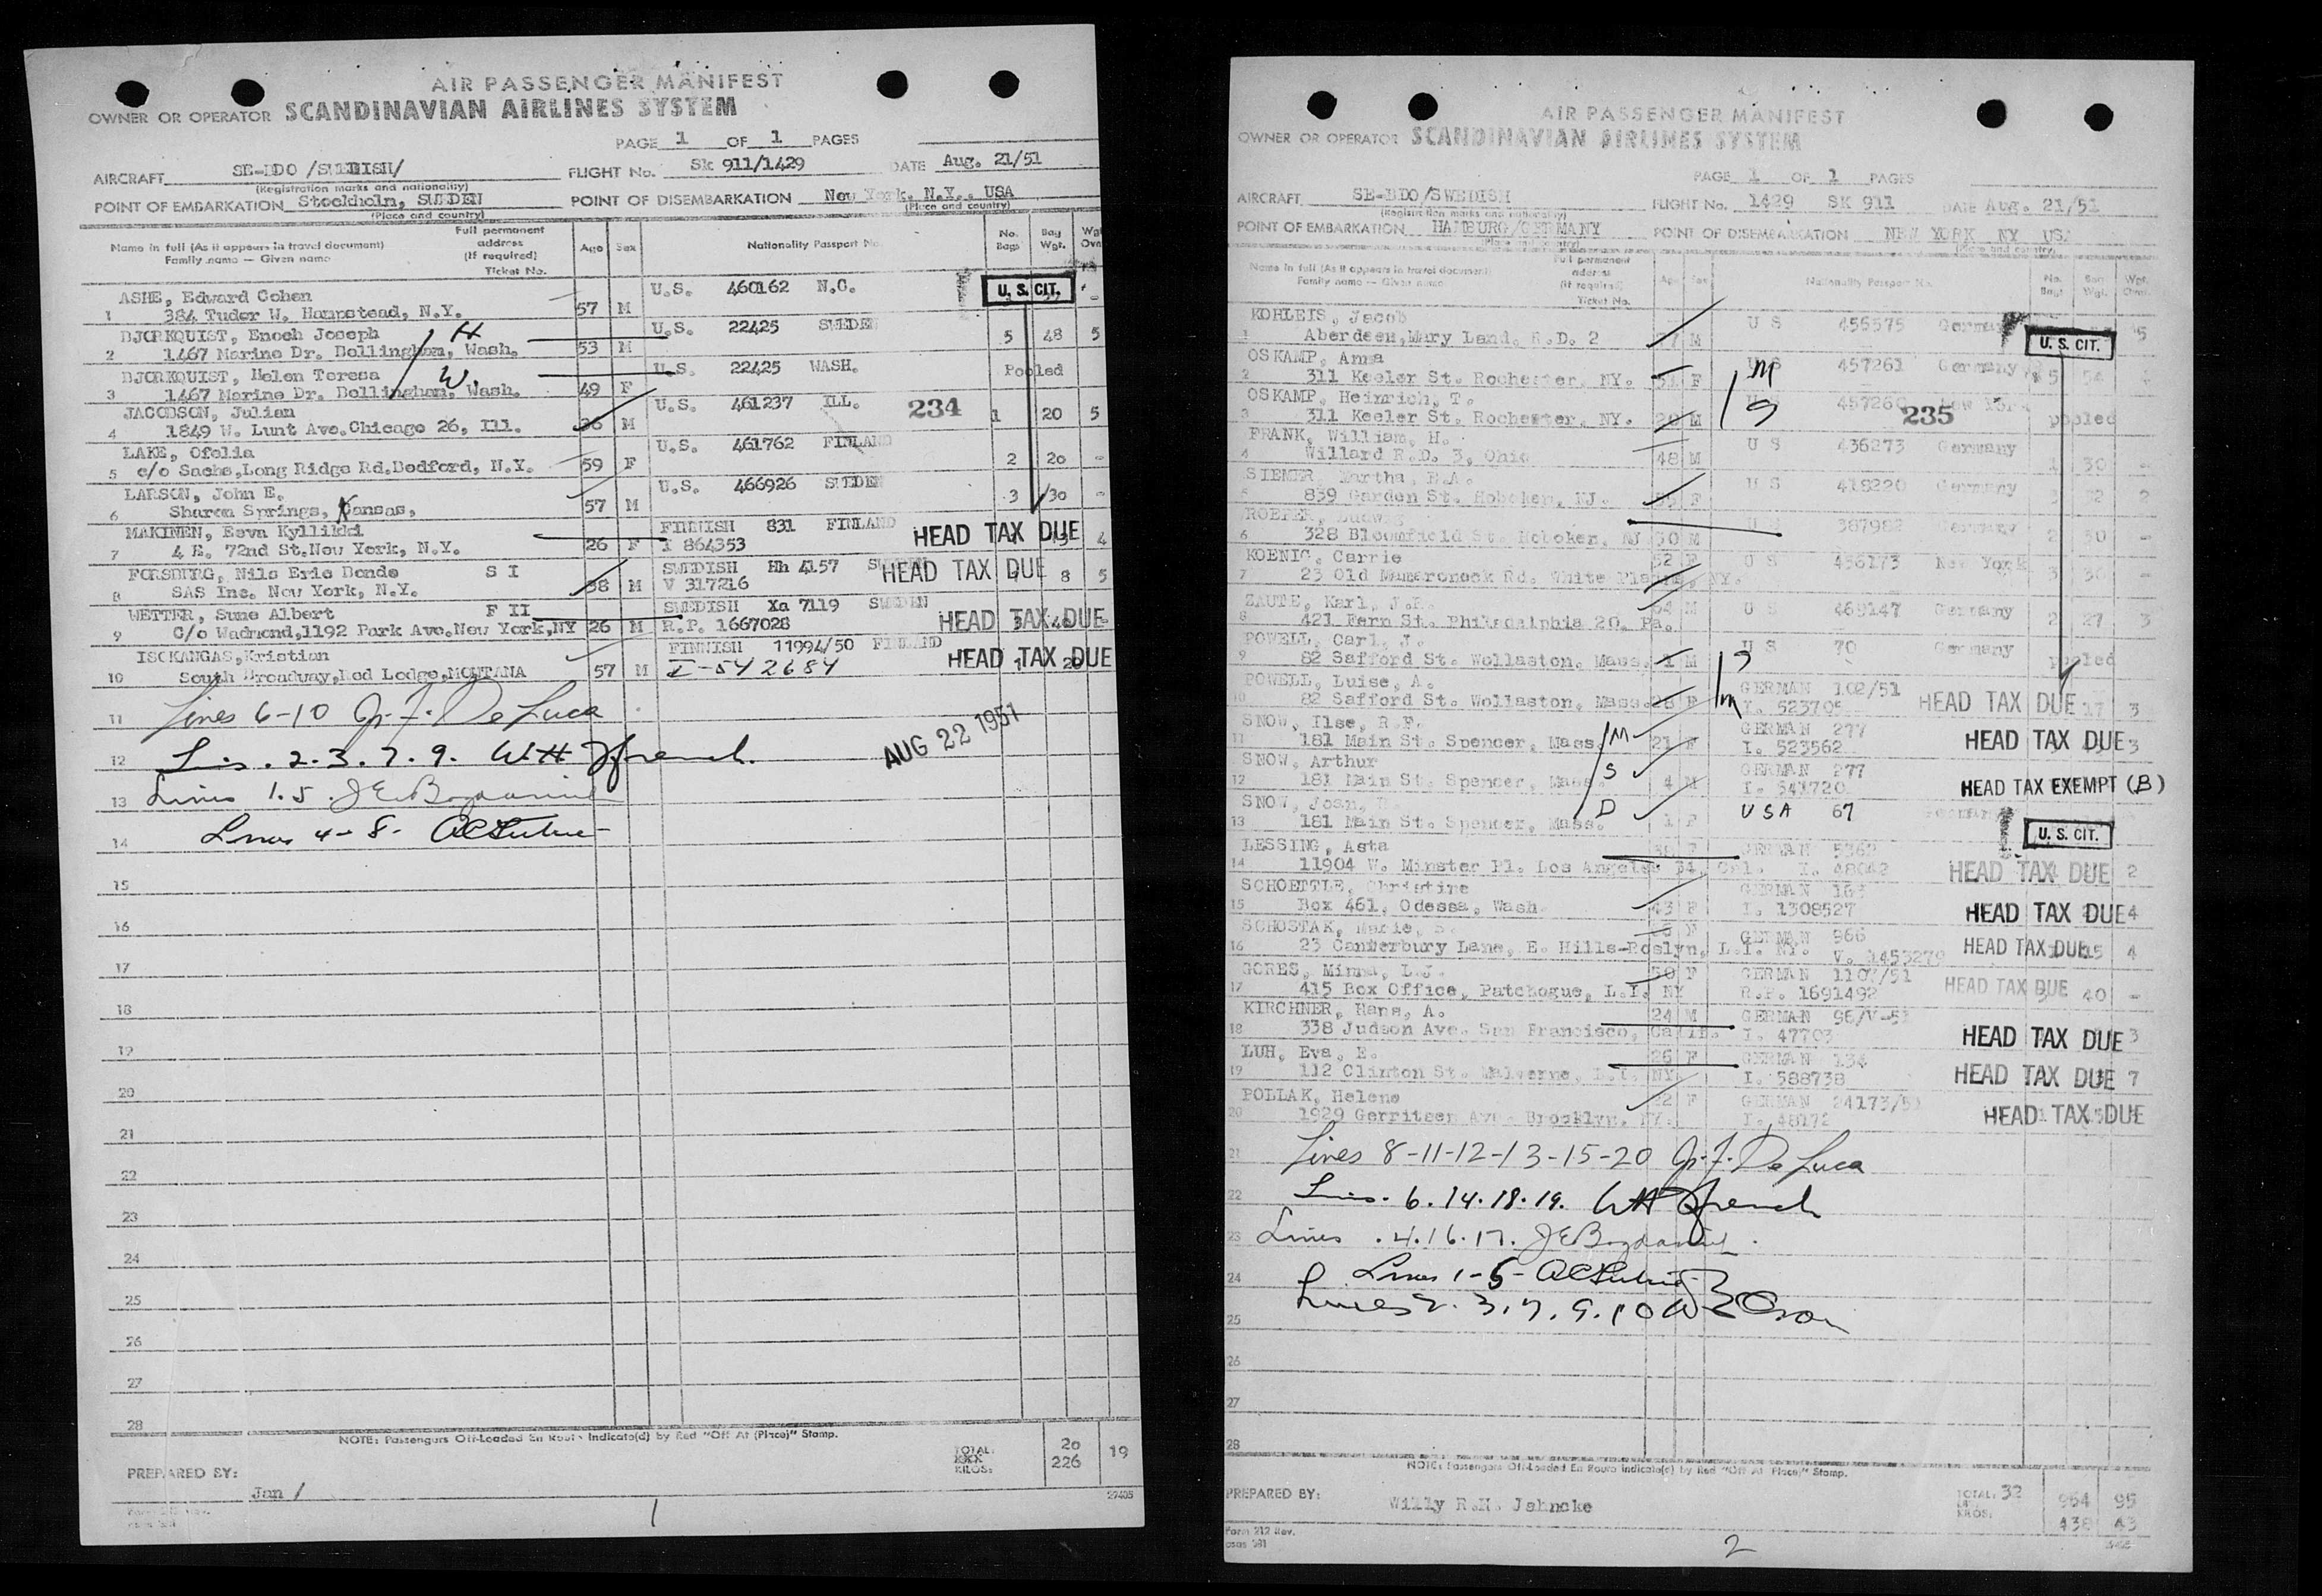 AIR PASSENGER MANIFEST
OWNER OR OPERATOR SCANDINAVIAN AIRLINES SYSTEM
PAGE 1 OF 1 PAGES
AIRCRAFT SE-BDO /SWEDISH/ FLIGHT No. Sk 911/1429 DATE Aug. 21/51
(Registration marks and nationality)
POINT OF EMBARKATION Stockholm, SWEDEN POINT OF DISEMBARKATION New York, N.Y., USA
(Place and country) (Place and country)
Name in full (As it appears in travel document) Family name — Given name Full permanent address (If required) Ticket No. Age Sex Nationality Passport No. No. Bags Bag Wgt.
ASHE, Edward Cohen U.S. 460162 N.C. U. S. CIT.
1 384 Tudor W. Hampstead, N.Y. 57 M
BJORKQUIST, Enoch Joseph H U.S. 22425 SWEDEN 5 48 5
2 1467 Marine Dr. Bellingham, Wash. 53 M
BJORKQUIST, Helen Teresa W. U.S. 22425 WASH. Pooled
3 1467 Marine Dr. Bellingham, Wash. 49 F
JACOBSON, Julian U.S. 461237 ILL. 234 1 20 5
4 1849 W. Lunt Ave. Chicago 26, Ill. 36 M
LAKE, Ofelia U.S. 461762 FINLAND 2 20 -
5 c/o Sachs, Long Ridge Rd. Bedford, N.Y. 59 F
LARSON, John E. U.S. 466926 SWEDEN 3 30 -
6 Sharon Springs, Kansas, 57 M
MAKINEN, Eeva Kyllikki FINNISH 831 FINLAND HEAD TAX DUE 4
7 4 E. 72nd St. New York, N.Y. 26 F I 864353
FORSBURG, Nils Eric Bonde S I SWEDISH Hh 4157 HEAD TAX DUE 8 5
8 SAS Inc. New York, N.Y. 38 M V 317216
WETTER, Sune Albert F II SWEDISH Xa 7119 SWEDEN HEAD TAX DUE
9 C/o Wadmond, 1192 Park Ave. New York, NY 26 M R.P. 1667028
ISOKANGAS, Kristian FINNISH 11994/50 FINLAND HEAD TAX DUE
10 South Broadway, Red Lodge, MONTANA 57 M I-542684
11 Lines 6-10 J.F. De Luca
AUG 22 1951
12 Lns. 2.3.7.9. WH French.
13 Lines 1.5
14 Lines 4-8-
15
16
17
18
19
20
21
22
23
24
25
26
27
28
NOTE: Passengers Off-Loaded En Route Indicate(d) by Red "Off At (Place)" Stamp.
TOTAL: 20 19
KILOS: 226
PREPARED BY: Jan /
27405
1
AIR PASSENGER MANIFEST
OWNER OR OPERATOR SCANDINAVIAN AIRLINES SYSTEM
PAGE 1 OF 1 PAGES
AIRCRAFT SE-BDO/SWEDISH FLIGHT No. 1429 SK 911 DATE Aug. 21/51
(Registration marks and nationality)
POINT OF EMBARKATION HAMBURG/GERMANY POINT OF DISEMBARKATION NEW YORK NY USA
(Place and country) (Place and country)
Name in full (As it appears in travel document) Family name — Given name Full permanent address (If required) Ticket No. Age Sex Nationality Passport No. No. Bags Bag Wgt.
KOHLEIS, Jacob U S 456575 Germany U. S. CIT. 5
1 Aberdeen, Mary Land. R.D. 2 M
OSKAMP, Anna M U S 457261 Germany 5 54
2 311 Keeler St. Rochester, NY. 51 F
OSKAMP, Heinrich, T. S 457260 New York 235 pooled
3 311 Keeler St. Rochester, NY. 20 M
FRANK, William, H. U S 436273 Germany 1 30 -
4 Willard R.D. 3, Ohio 48 M
SIEMER, Martha, H.A. U S 418220 Germany 3 52 2
5 859 Garden St. Hoboken, NJ. F
ROEFER, Ludwig U S 387982 Germany 2 30 -
6 328 Bloomfield St. Hoboken, NJ 50 M
KOENIG, Carrie 52 F U S 456173 New York 3 30 -
7 23 Old Mamaroneck Rd. White Plains, NY.
ZAUTE, Karl, J.F. 64 M U S 469147 Germany 2 27 3
8 421 Fern St. Philadelphia 20, Pa.
POWELL, Carl, J. U S 70 Germany pooled
9 82 Safford St. Wollaston, Mass. 1 M S
POWELL, Luise, A. GERMAN 102/51 HEAD TAX DUE 17 3
10 82 Safford St. Wollaston, Mass. 28 F M I. 523705
SNOW, Ilse, R.F. M GERMAN 277 HEAD TAX DUE 3
11 181 Main St. Spencer, Mass. 21 F I. 523562
SNOW, Arthur S GERMAN 277 HEAD TAX EXEMPT (B)
12 181 Main St. Spencer, Mass. 4 M I. 541720
SNOW, Joan, D USA 67 Germany
13 181 Main St. Spencer, Mass. 1 F U. S. CIT.
LESSING, Asta 38 F GERMAN 5362 HEAD TAX DUE 2
14 11904 W. Minster Pl. Los Angeles 34, Cal. I. 48042
SCHOETTLE, Christine GERMAN HEAD TAX DUE 4
15 Box 461, Odessa, Wash. 43 F I. 1308527
SCHOSTAK, Marie, F GERMAN 966 HEAD TAX DUE 4
16 23 Canterbury Lane, E. Hills-Roslyn, L.I. NY. V. 1453279
GORES, Minna, L.J. 50 F GERMAN 1107/51 HEAD TAX DUE 40 -
17 415 Box Office, Patchogue, L.I. NY R.P. 1691492
KIRCHNER, Hans, A. 24 M GERMAN 96/V-51 HEAD TAX DUE 3
18 338 Judson Ave. San Francisco, Calif. I. 47703
LUH, Eva, E. 26 F GERMAN 134 HEAD TAX DUE 7
19 112 Clinton St. Malverne, L.I. NY. I. 588738
POLLAK, Helene 22 F GERMAN 24173/51 HEAD TAX DUE
20 1929 Gerritsen Ave. Brooklyn, NY. I. 48172
21 Lines 8-11-12-13-15-20 J.F. De Luca
22 Lns. 6.14.18.19. WH French
23 Lines .4.16.17.
24 Lines 1-5-
25 Lines 2.3.7.9.10
26
27
28
NOTE: Passengers Off-Loaded En Route Indicate(d) by Red "Off At (Place)" Stamp.
PREPARED BY: Willy R.H. Jahncke
TOTAL: 32 964 95
KILOS: 438 43
Form 212 Rev.
2